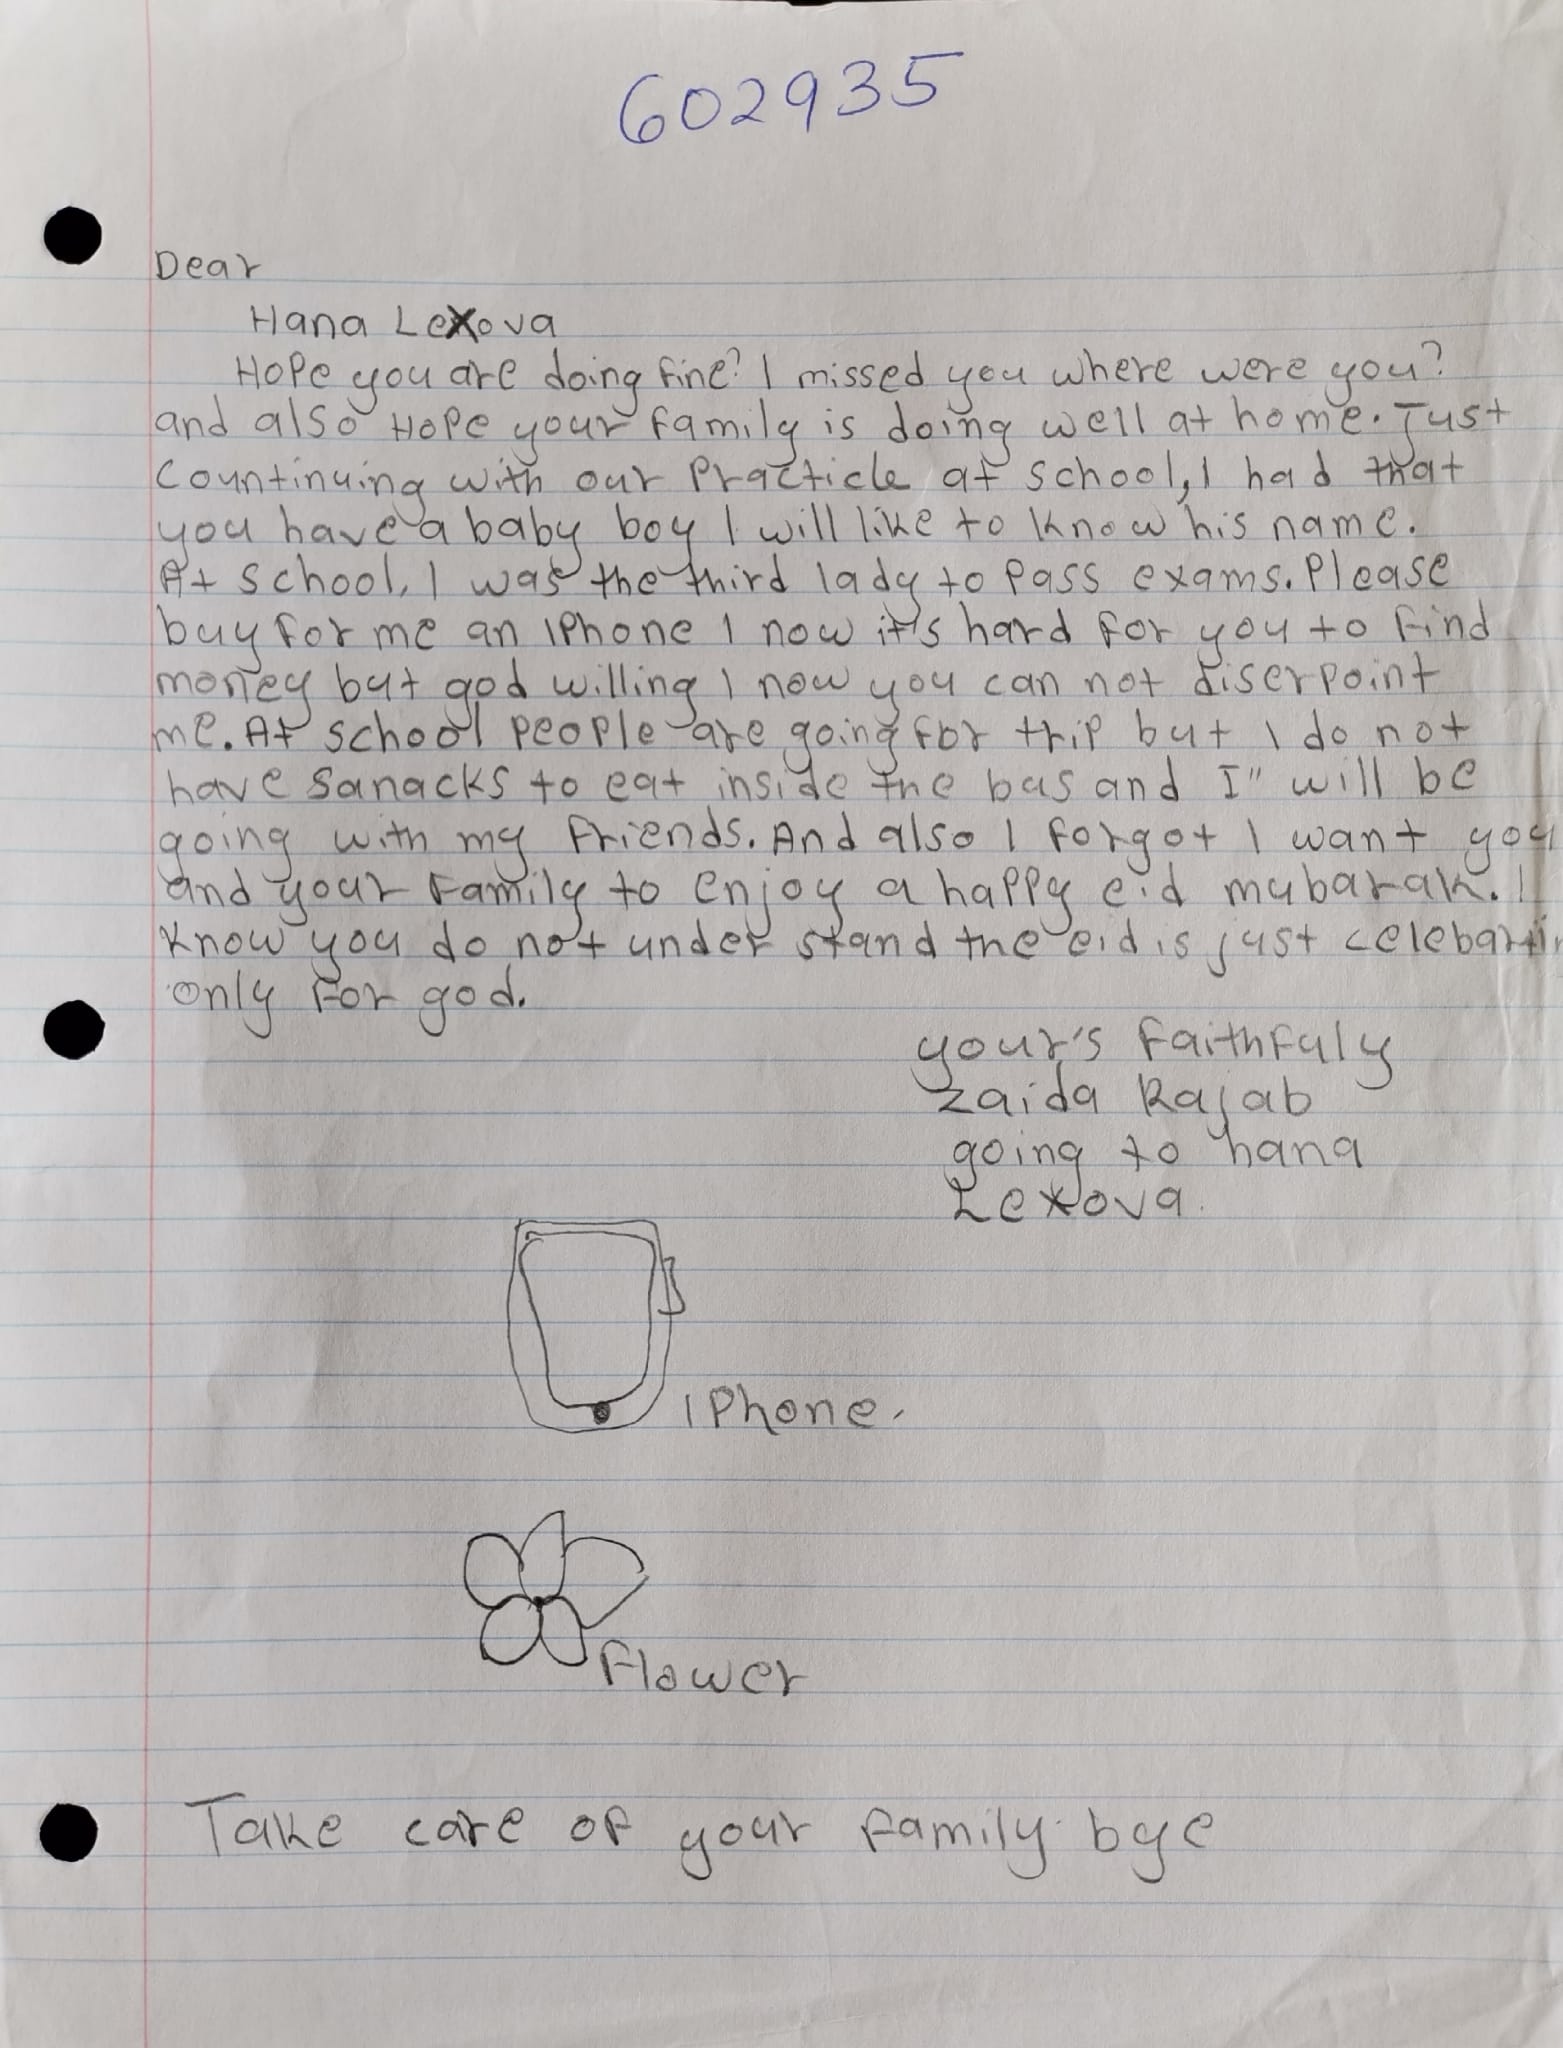 602935
Dear
Hana Lexova
Hope you are doing fine? I missed you where were you?
and also Hope your family is doing well at home. Just
Countinuing with our Practicle at school, I had that
you have a baby boy I will like to know his name.
At school, I was the third lady to Pass exams. Please
buy for me an iPhone I now it's hard for you to find
money but god willing I now you can not diserpoint
me. At school People are going for trip but I do not
have sanacks to eat inside the bus and I" will be
going with my friends. And also I forgot I want you
and your family to enjoy a happy eid mubarak. I
Know you do not under stand the eid is just
only for god.
your's faithfuly
zaida Rajab
going to hana
Lexova.
iPhone.
flower
Take care of your family. bye